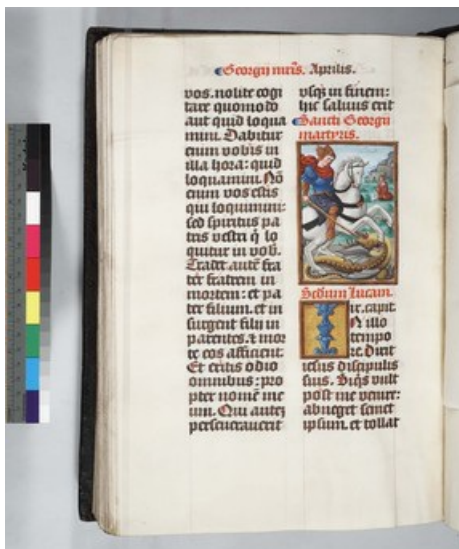 Georgii mris. Aprilis.
vos. nolite cogi
tare quomodo
aut quid loqua
mini. Dabitur
enim vobis in
illa hora: quid
loquamini. Nō
enim vos estis
qui loquimini:
sed spiritus pa
tris vestri q̄ lo
quitur in vob̄.
Tradet autē fra
ter fratrem in
mortem: et pa
ter filium. et in
surgent filii in
parentes. ⁊ mor
te eos afficient.
Et eritis odio
omnibus: pro
pter nomē me
um. Qui autez
perseuerauerit
vsqz in finem:
hic saluus erit
Sancti Georgii
martyris.
Scdum Lucam.
In illo
tempo
re. Dixit
iesus discipulis
suis. Siqs vult
post me venire:
abneget semet
ipsum. et tollat